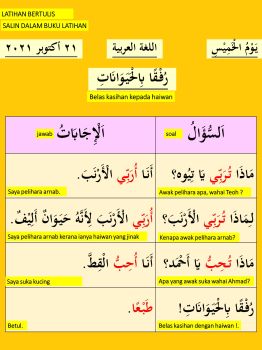 LATIHAN BERTULIS
SALIN DALAM BUKU LATIHAN
يَوْمُ الْخَمِيْسِ
اللغة العربية
٢١ أكتوبر ٢٠٢١
رُفْقًا بِالْحَيَوَانَاتِ
Belas kasihan kepada haiwan
اَلسُّؤَالُ
soal
اَلْإِجَابَاتُ
jawab
مَاذَا تُرَبِّي يَا تِيُوه؟
Awak pelihara apa, wahai Teoh ?
أَنَا أُرَبِّي الْأَرْنَبَ.
Saya pelihara arnab.
لِمَاذَا تُرَبِّي الْأَرْنَبَ؟
Kenapa awak pelihara arnab?
أُرَبِّي الْأَرْنَبَ لِأَنَّهُ حَيَوَانٌ أَلِيْفٌ.
Saya pelihara arnab kerana ianya haiwan yang jinak
مَاذَا تُحِبُّ يَا أَحْمَد؟
Apa yang awak suka wahai Ahmad?
أَنَا أُحِبُّ الْقِطَّ.
Saya suka kucing
رُفْقًا بِالْحَيَوَانَاتِ!
Belas kasihan dengan haiwan !.
طَبْعًا.
Betul.